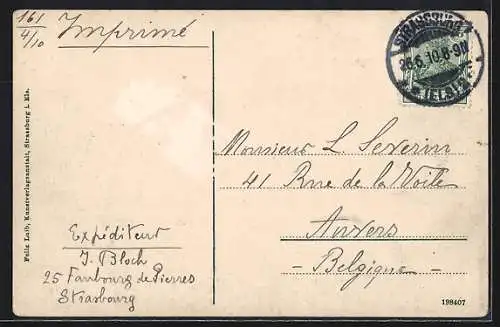 161
4/10
Imprimé
STRASSBURG
26.6.10.8-9N
(ELS.)
Monsieur L. Severin
41 Rue de la Voile
Anvers
- Belgique -
Expéditeur
J. Bloch
25 Faubourg de Pierres
Strasbourg
Felix Luib, Kunstverlagsanstalt, Strassburg i. Els.
198407